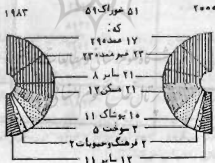 ۱۹۸۳ ۲۰۰۰
۵۱ خوراک ۵۹
که:
۱۷ عمده ۲۹
۲۳ غیرعمده ۲۳
۲۱ سایر ۸
۲۱ مسکن ۱۲
۱۰ پوشاک ۱۱
۲ سوخت ۵
۲ فرهنگ وحبوبات ۲
۱۲ سایر ۱۱